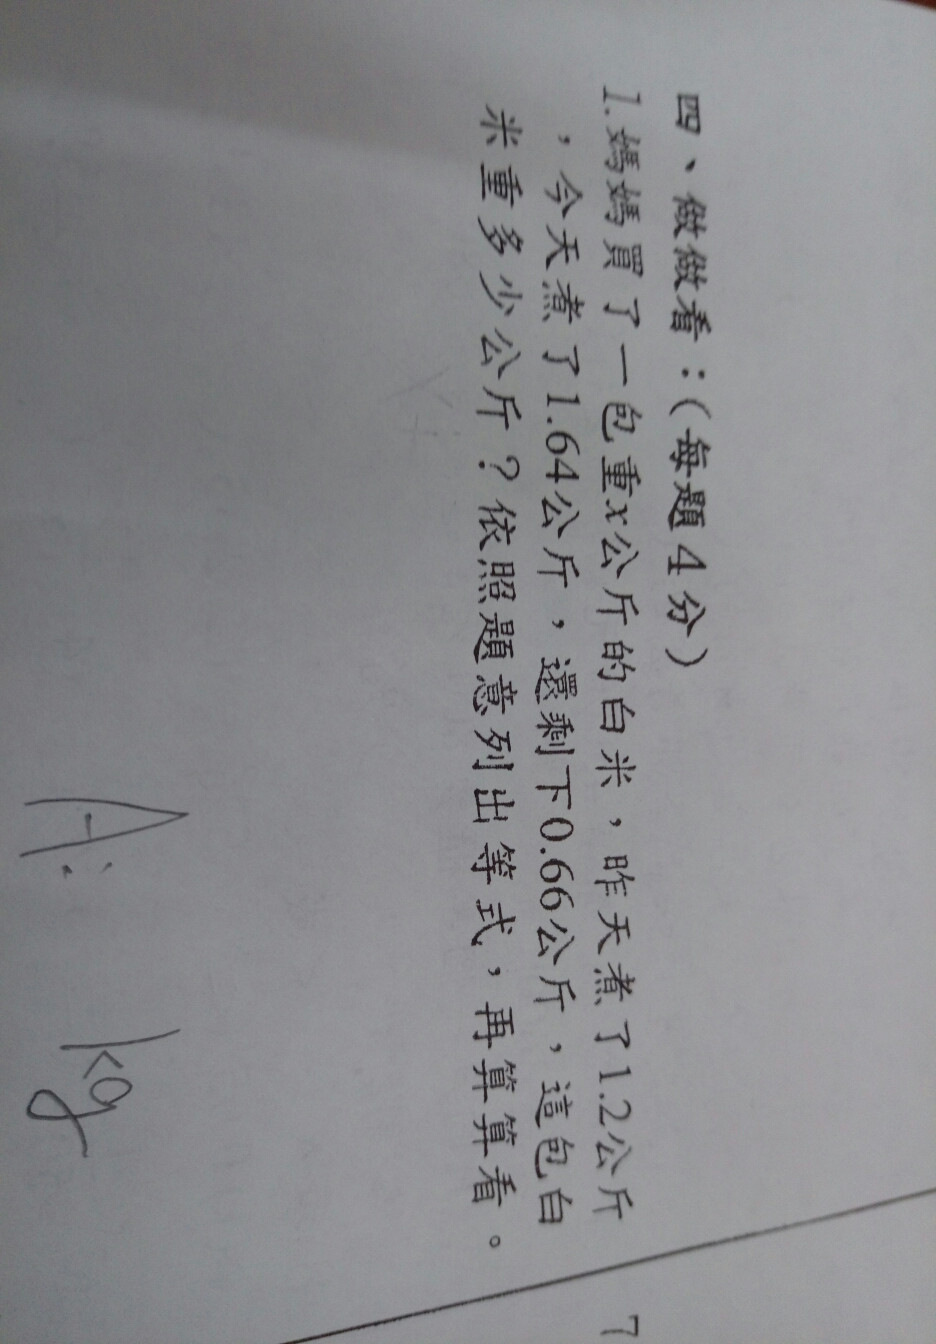 四、做做看：(每題4分)
1.媽媽買了一包重x公斤的白米，昨天煮了1.2公斤
，今天煮了1.64公斤，還剩下0.66公斤，這包白
米重多少公斤？依照題意列出等式，再算算看。
A: kg
7